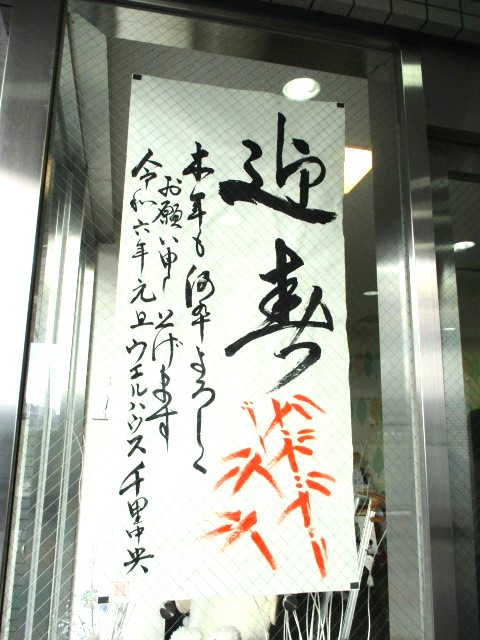 迎春
本年も何卒よろしく
お願い申し上げます
令和六年元旦ウエルハウス千里中央